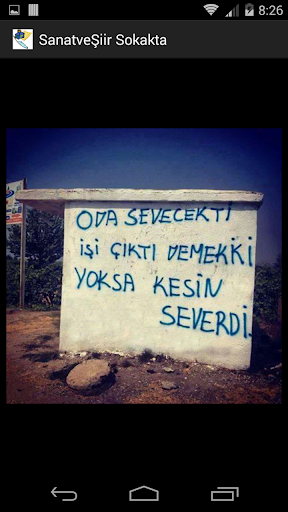 8:26
SanatveŞiir Sokakta
ODA SEVECEKTİ
İŞİ ÇIKTI DEMEKKİ
YOKSA KESİN
SEVERDİ.